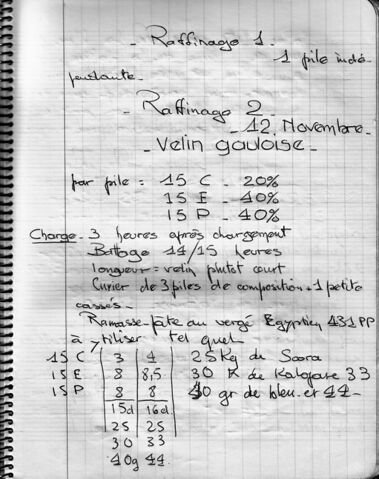 - Raffinage 1 -
1 pile indé-
pendante -
- Raffinage 2 -
- 12. Novembre -
- Velin gauloise -
par pile = 15 C - 20%
15 E - 40%
15 P - 40%
Charge - 3 heures après chargement
Battage 14/15 heures
longueur = velin plutot court
Cuvier de 3 piles de composition + 1 petite
cassés -
Ramasse-pâte au vergé Egyptien 431 PP
à utiliser tel quel
15 C 3 4 25 Kg de
15 E 8 8,5 30 K de 33
15 P 8 8 40 gr de bleu et 44 -
15d 16d
25 25
30 33
40g 44